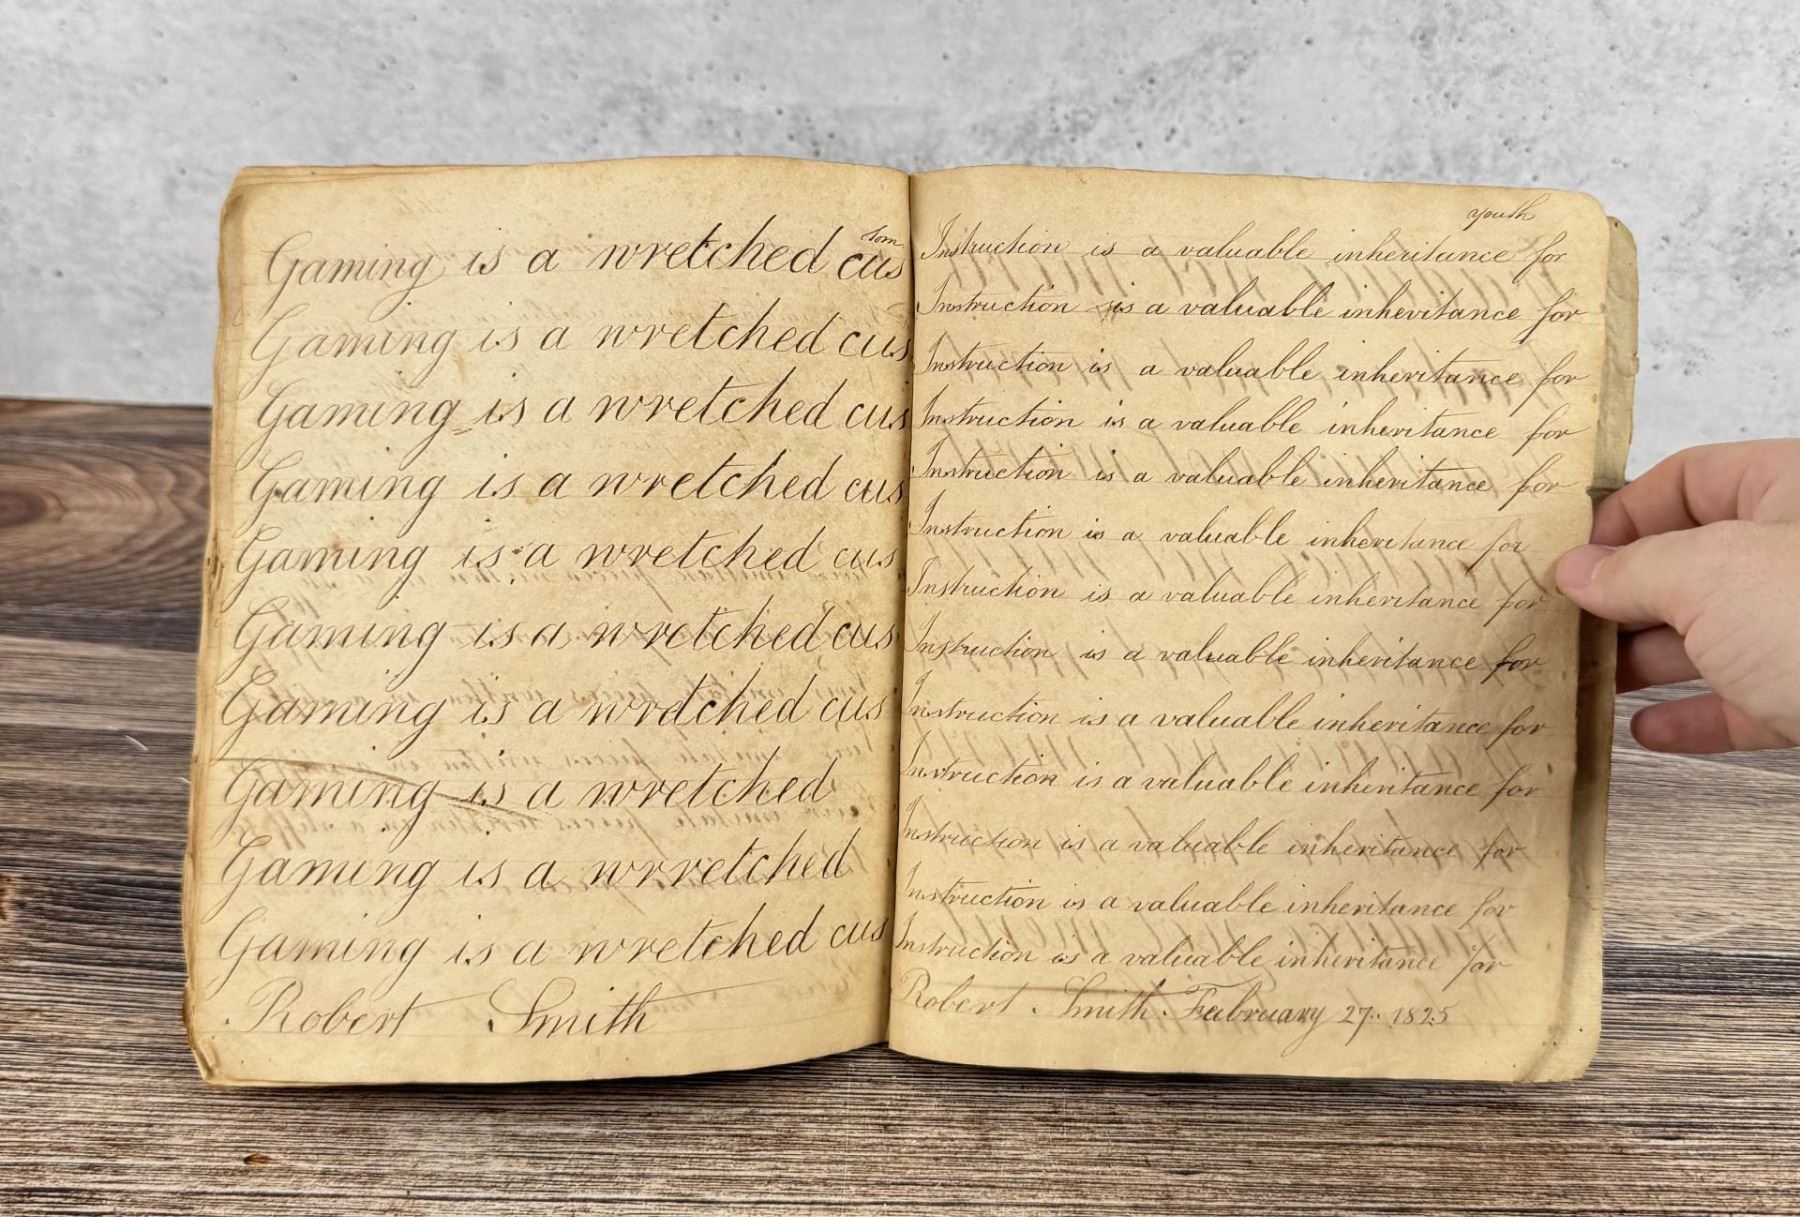 tom
Gaming is a wretched cus
Gaming is a wretched cus
Gaming is a wretched cus
Gaming is a wretched cus
Gaming is a wretched cus
Gaming is a wretched cus
Gaming is a wretched cus
Gaming is a wretched
Gaming is a wrretched
Gaming is a wretched cus
Robert Smith
youth
Instruction is a valuable inheritance for
Instruction is a valuable inheritance for
Instruction is a valuable inheritance for
Instruction is a valuable inheritance for
Instruction is a valuable inheritance for
Instruction is a valuable inheritance for
Instruction is a valuable inheritance for
Instruction is a valuable inheritance for
Instruction is a valuable inheritance for
Instruction is a valuable inheritance for
Instruction is a valuable inheritance for
Instruction is a valuable inheritance for
Instruction is a valuable inheritance for
Robert Smith. February 27. 1825